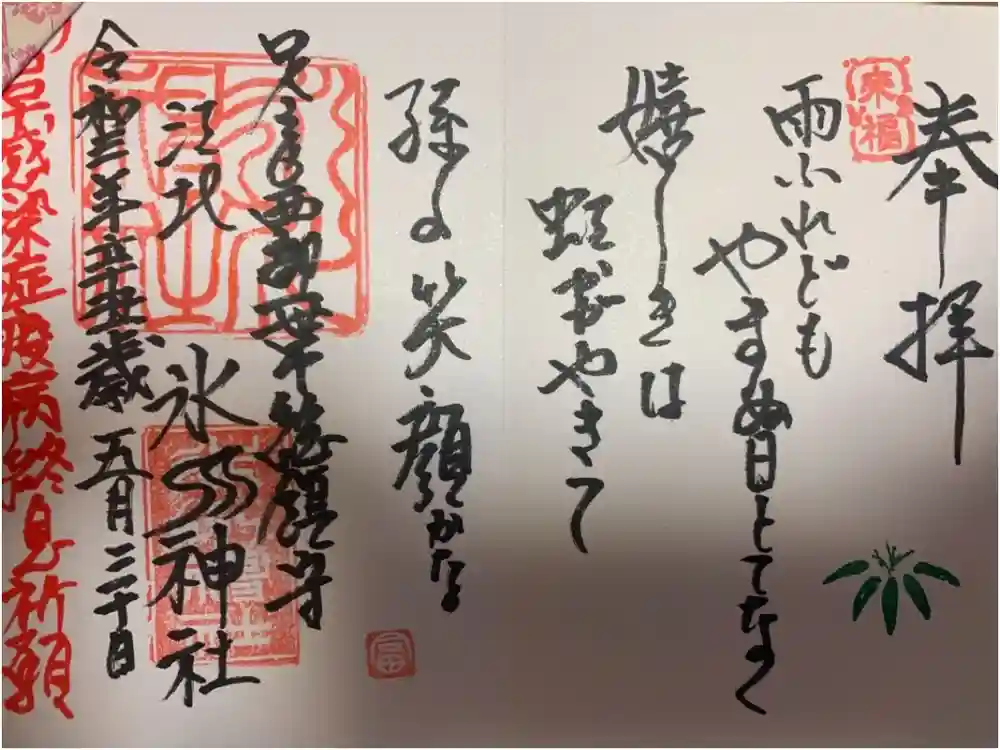 奉拝
来福
雨ふれども
やまぬ日とてなく
嬉しきは
虹がやきて
孫の笑顔かな
足立西部 葉 鎮守
江北 氷川神社
令和三年辛丑歳 五月二十日
早感染症疫病終息祈願